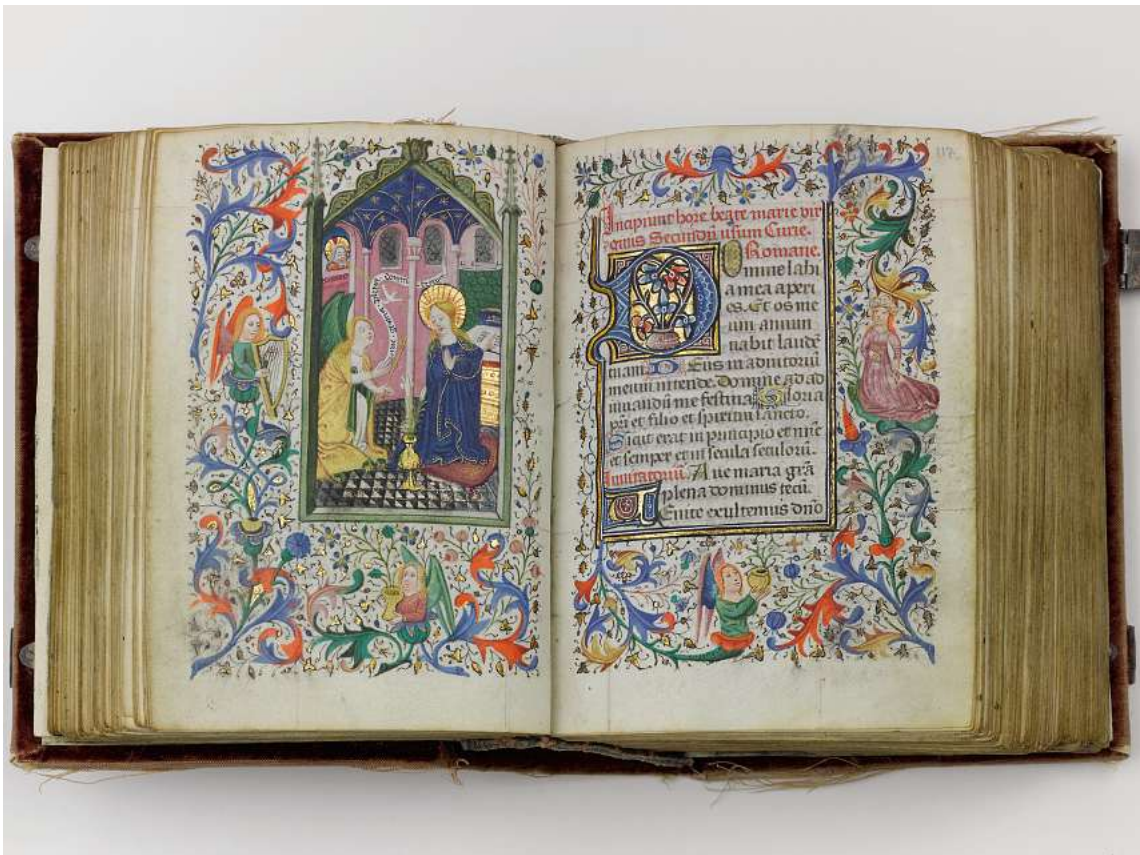 Incipiunt hore beate marie vir
ginis Secundū usum Curie
Romane.
Domine labi
a mea aperi
es. Et os me
um annun
tiabit laudē
tuam. Deus in adiutoriū
meum intende. Domine ad ad
iuvandū me festina Gloria
pri et filio et spiritui sancto.
Sicut erat in principio et nūc
et semper et in secula seculorū.
Invitatoriū. Ave maria grā
plena dominus tecū.
Venite exultemus dn̄o